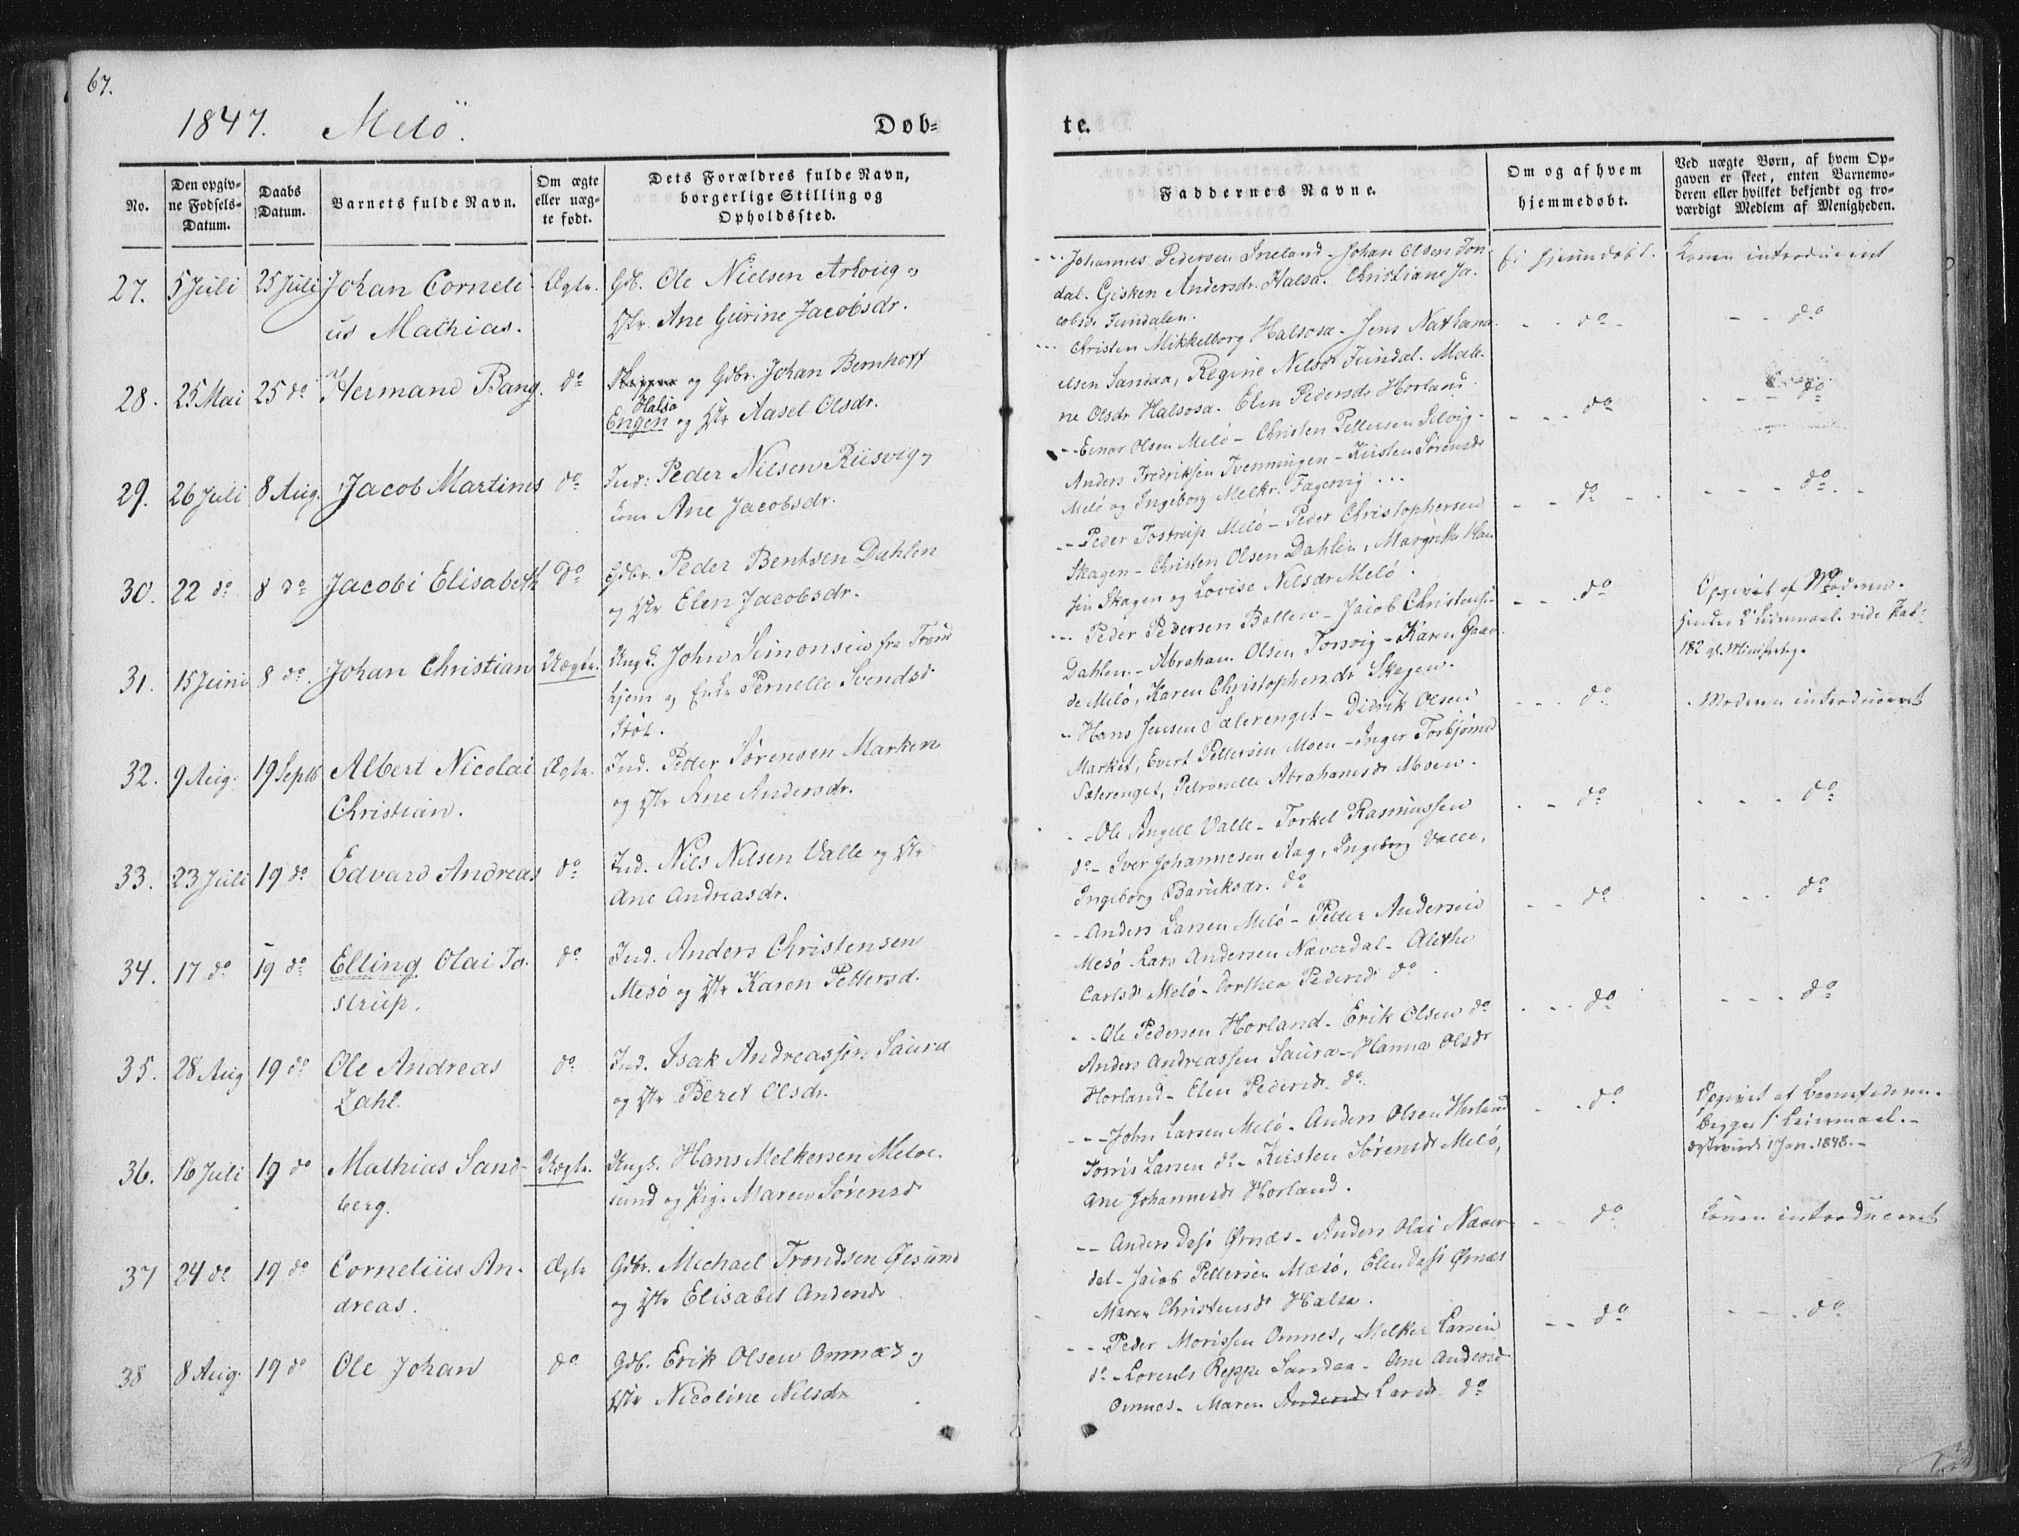 67.
1847. Melö.
Døb-
te.
No.
Den opgiv-
ne Fødsels-
Datum.
Daabs
Datum.
Barnets fulde Navn.
Om ægte
eller uæg-
te født.
Dets Forældres fulde Navn,
borgerlige Stilling og
Opholdssted.
Faddernes Navne.
Om og af hvem
hjemmedøbt.
Ved uægte Børn, af hvem Op-
gaven er skeet, enten Barnemo-
deren eller hvilket bekjendt og tro-
værdigt Medlem af Menigheden.
27. 5 Juli 25 Juli Johan Corneli- Ægte. Gb. Ole Nielsen
us Mathias. Ane Gurine Jacobsdr.
28. 25 Mai 25 do Hermand Bang. do og Gdbr. Johan Bernhoft
Halsø
Engen og Aasel Olsdr.
29. 26 Juli 8 Aug. Jacob Martinus do Ind: Peder Nilsen Riisvig
Ane Jacobsdr.
30. 22 do 8 do Jacobi Elisabeth do Gdbr. Peder Bentsen Dahlen
og Elen Jacobsdr.
31. 15 Juni 8 do. Johan Christian Uægte. Ungk. John Simonsen fra Trond
hjem og Enke Pernelle Svendsd
Støt.
32. 9 Aug. 19 Septb Albert Nicolai Ægte. Ind. Peder Sørensen Marken
Christian. og Ane Andersdr.
33. 23 Juli 19 do Edvard Andreas do Ind. Nils Nilsen Valle og
Ane Andreasdr.
34. 17 do 19 do Elling Olai To- do Ind. Anders Christensen
strup. Mesö og Karen Pettersd.
35. 28 Aug 19 do Ole Andreas do Ind. Isak Andreassen Saura
Zahl. og Beret Olsdr.
36. 16 Juli 19 do Mathias Sand- Uægte. Ungk. Hans Melkersen Meløe-
berg. sund og Pig. Maren Sørensd
37 24 do 19 do Cornelius An- Ægte Gdbr. Michael Trondsen Øesund
dreas. og Elisabet Andersdr
38 8 Aug. 19 do Ole Johan do Gdb. Erik Olsen Omnæs og
Nicoline Nilsdr
Johannes Pedersen - Johan Olsen Fon-
dal. Gisken Andersdr. Halsa. Christiane Ja-
cobsdr Fundalen.
Christen Mikkelborg Halsosa - Jens Nathana-
elsen Sandaa, Regine Nilsdr Fundal. Male-
ne Olsdr Halsosa. Elen Pedersdr Horland.
Einar Olsen Melö - Christen Pettersen
Anders Fredriksen Tvenningen - Kirsten Sørensdr
Melö og Ingeborg Melkr. Fagervig
Peder Tostrup Melö - Peder Christophersen
Skagen - Christen Olsen Dahlen, Margrethe Han
sen Skagen og Lovise Nilsdr Melö.
Peder Pedersen Bollen - Jacob Christens.
Dahlen - Abraham Olsen Torsvig - Karen Gaar
de Melö, Karen Christophersdr Skagen.
Hans Jensen Sæterenget - Didrik Olsen
Market, Evert Pettersen Moen - Inger Torbjörnsd
Sæterenget, Petronelle Abrahamsdr Moen.
Ole Angell Valle - Torkel Rasmussen
do - Iver Johannesen Aag, Ingeborg Valle,
Ingeborg Baruksdr. do
Anders Larsen Melö - Petter Andersen
Mesö - Lars Andersen Næverdal - Alethe
Carlsdr Melö - Dorthea Pedersdr do
Ole Pedersen Horland - Erik Olsen do
Anders Andreassen Saura - Hanna Olsdr
Horland - Elen Pedersdr do
John Larsen Melö - Anders Olsen Horland
Torris Larsen do - Kirsten Sørensdr Melö,
Ane Johannesdr Horland.
Anders Dass Ørnæs - Anders Olai Næver-
dal - Jacob Pettersen Mæsö, Elen Dass Ørnæs
Maren Christensdr Halsa.
Peder Morissen Omnes, Melker Larsen
do - Lorents Reppe Sandaa - Ane Andersdr
Omnes - Maren Andersd Larsdr do
Ei hjemmedøbt. Konen introduceret
do do
do do
do do
do Opgivet af Moderen.
182 Ministerbog.
do Moderen introduceret
do do
do do
do do
do Opgivet af Barnefaderen.
Begges 1ste Leiermaal.
1 Jan. 1848.
do Konen introduceret
do do